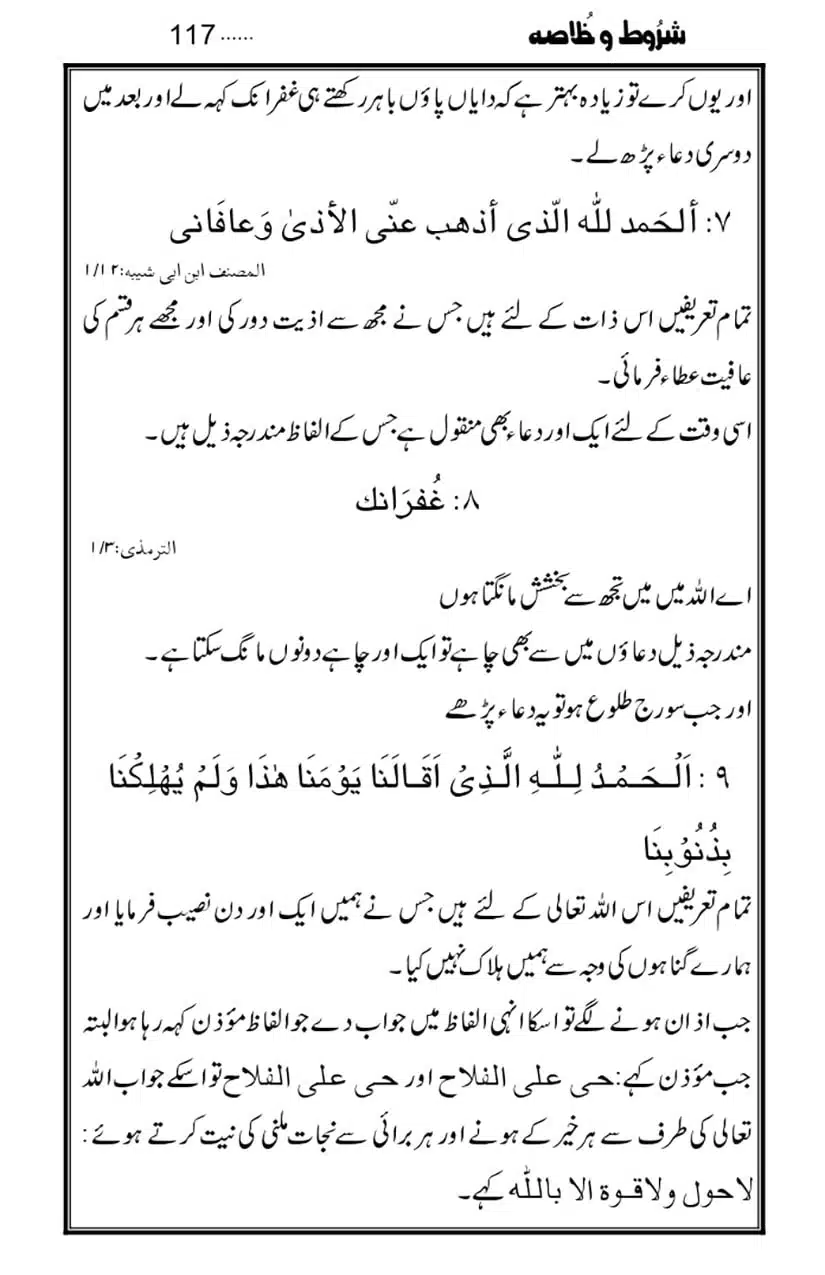 شرُوط و خُلاصه ...... 117
اور یوں کرے تو زیادہ بہتر ہے کہ دایاں پاؤں باہر رکھتے ہی غفرانک کہہ لے اور بعد میں
دوسری دعاء پڑھ لے۔
٧: ألحَمد للّٰه الّذی أذهب عنّی الأذیٰ وَعافَانی
المصنف ابن ابی شیبه:١/١٢
تمام تعریفیں اس ذات کے لئے ہیں جس نے مجھ سے اذیت دور کی اور مجھے ہر قسم کی
عافیت عطاء فرمائی۔
اسی وقت کے لئے ایک اور دعاء بھی منقول ہے جس کے الفاظ مندرجہ ذیل ہیں۔
٨: غُفرَانك
الترمذی:١/٣
اے اللہ میں میں تجھ سے بخشش مانگتا ہوں
مندرجہ ذیل دعاؤں میں سے بھی چاہے تو ایک اور چاہے دونوں مانگ سکتا ہے۔
اور جب سورج طلوع ہو تو یہ دعاء پڑھے
٩ : اَلْحَمْدُ لِلّٰهِ الَّذِیْ اَقَالَنَا یَوْمَنَا هٰذَا وَلَمْ یُهْلِكْنَا
بِذُنُوْبِنَا
تمام تعریفیں اس اللہ تعالی کے لئے ہیں جس نے ہمیں ایک اور دن نصیب فرمایا اور
ہمارے گناہوں کی وجہ سے ہمیں ہلاک نہیں کیا۔
جب اذان ہونے لگے تو اسکا انہی الفاظ میں جواب دے جو الفاظ مؤذن کہہ رہا ہو البتہ
جب مؤذن کہے:حی علی الفلاح اور حی علی الفلاح تو اسکے جواب اللہ
تعالی کی طرف سے ہر خیر کے ہونے اور ہر برائی سے نجات ملنی کی نیت کرتے ہوئے:
لاحول ولاقوة الا باللّٰه کہے۔